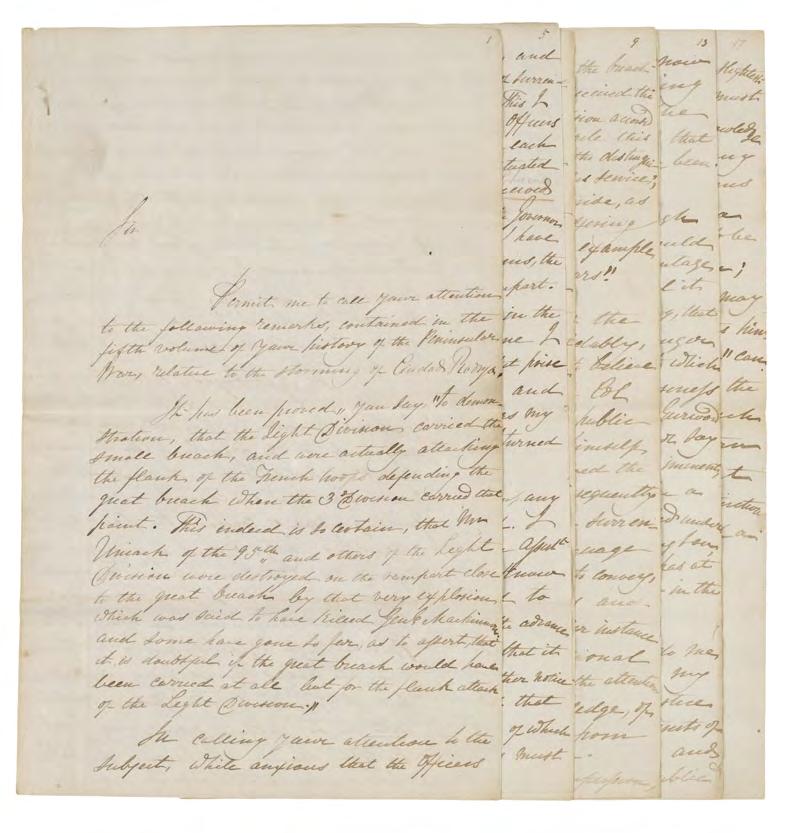 1
Sir
Permit me to call your attention
to the following remarks, contained in the
fifth volume of your history of the Peninsular
War, relative to the storming of Ciudad Rodrigo.
It has been proved, "you say, "to demon
stration, that the Light Division carried the
small breach, and were actually attacking
the flank of the French troops defending the
great breach when the 3d Division carried that
point. This indeed is so certain, that Mr
Uniack of the 95th and others of the Light
Division were destroyed on the rampart close
to the great breach by that very explosion
which was said to have killed Genl Mackinnon
and some have gone so far, as to assert, that
it is doubtful if the great breach would have
been carried at all but for the flank attack
of the Light Division."
In calling your attention to the
subject, while anxious that the Officers
5
and
surren-
This I
Officers
each
Governor
have
the
part.
in the
I
poise
and
my
turned
any
I
Assist
know
to
advance
that it
ther notice
that
of which
must
9
the breach
ceived this
sion accord
this
the disting
service;
side, as
example
ars!!
the
believe
Col
public
himself
ed the
sequently
surren
uage
to convey,
and
instance
ional
the attention
ledge, of
from
13
now
ing
the
that
been
gh
ould
l it
, that
which
ness
Gurwood
or
a
under
as at
in the
to me
my
of
and
public
17
Highness
must
nowledge
my
a
to be
;
may
him
" can
the